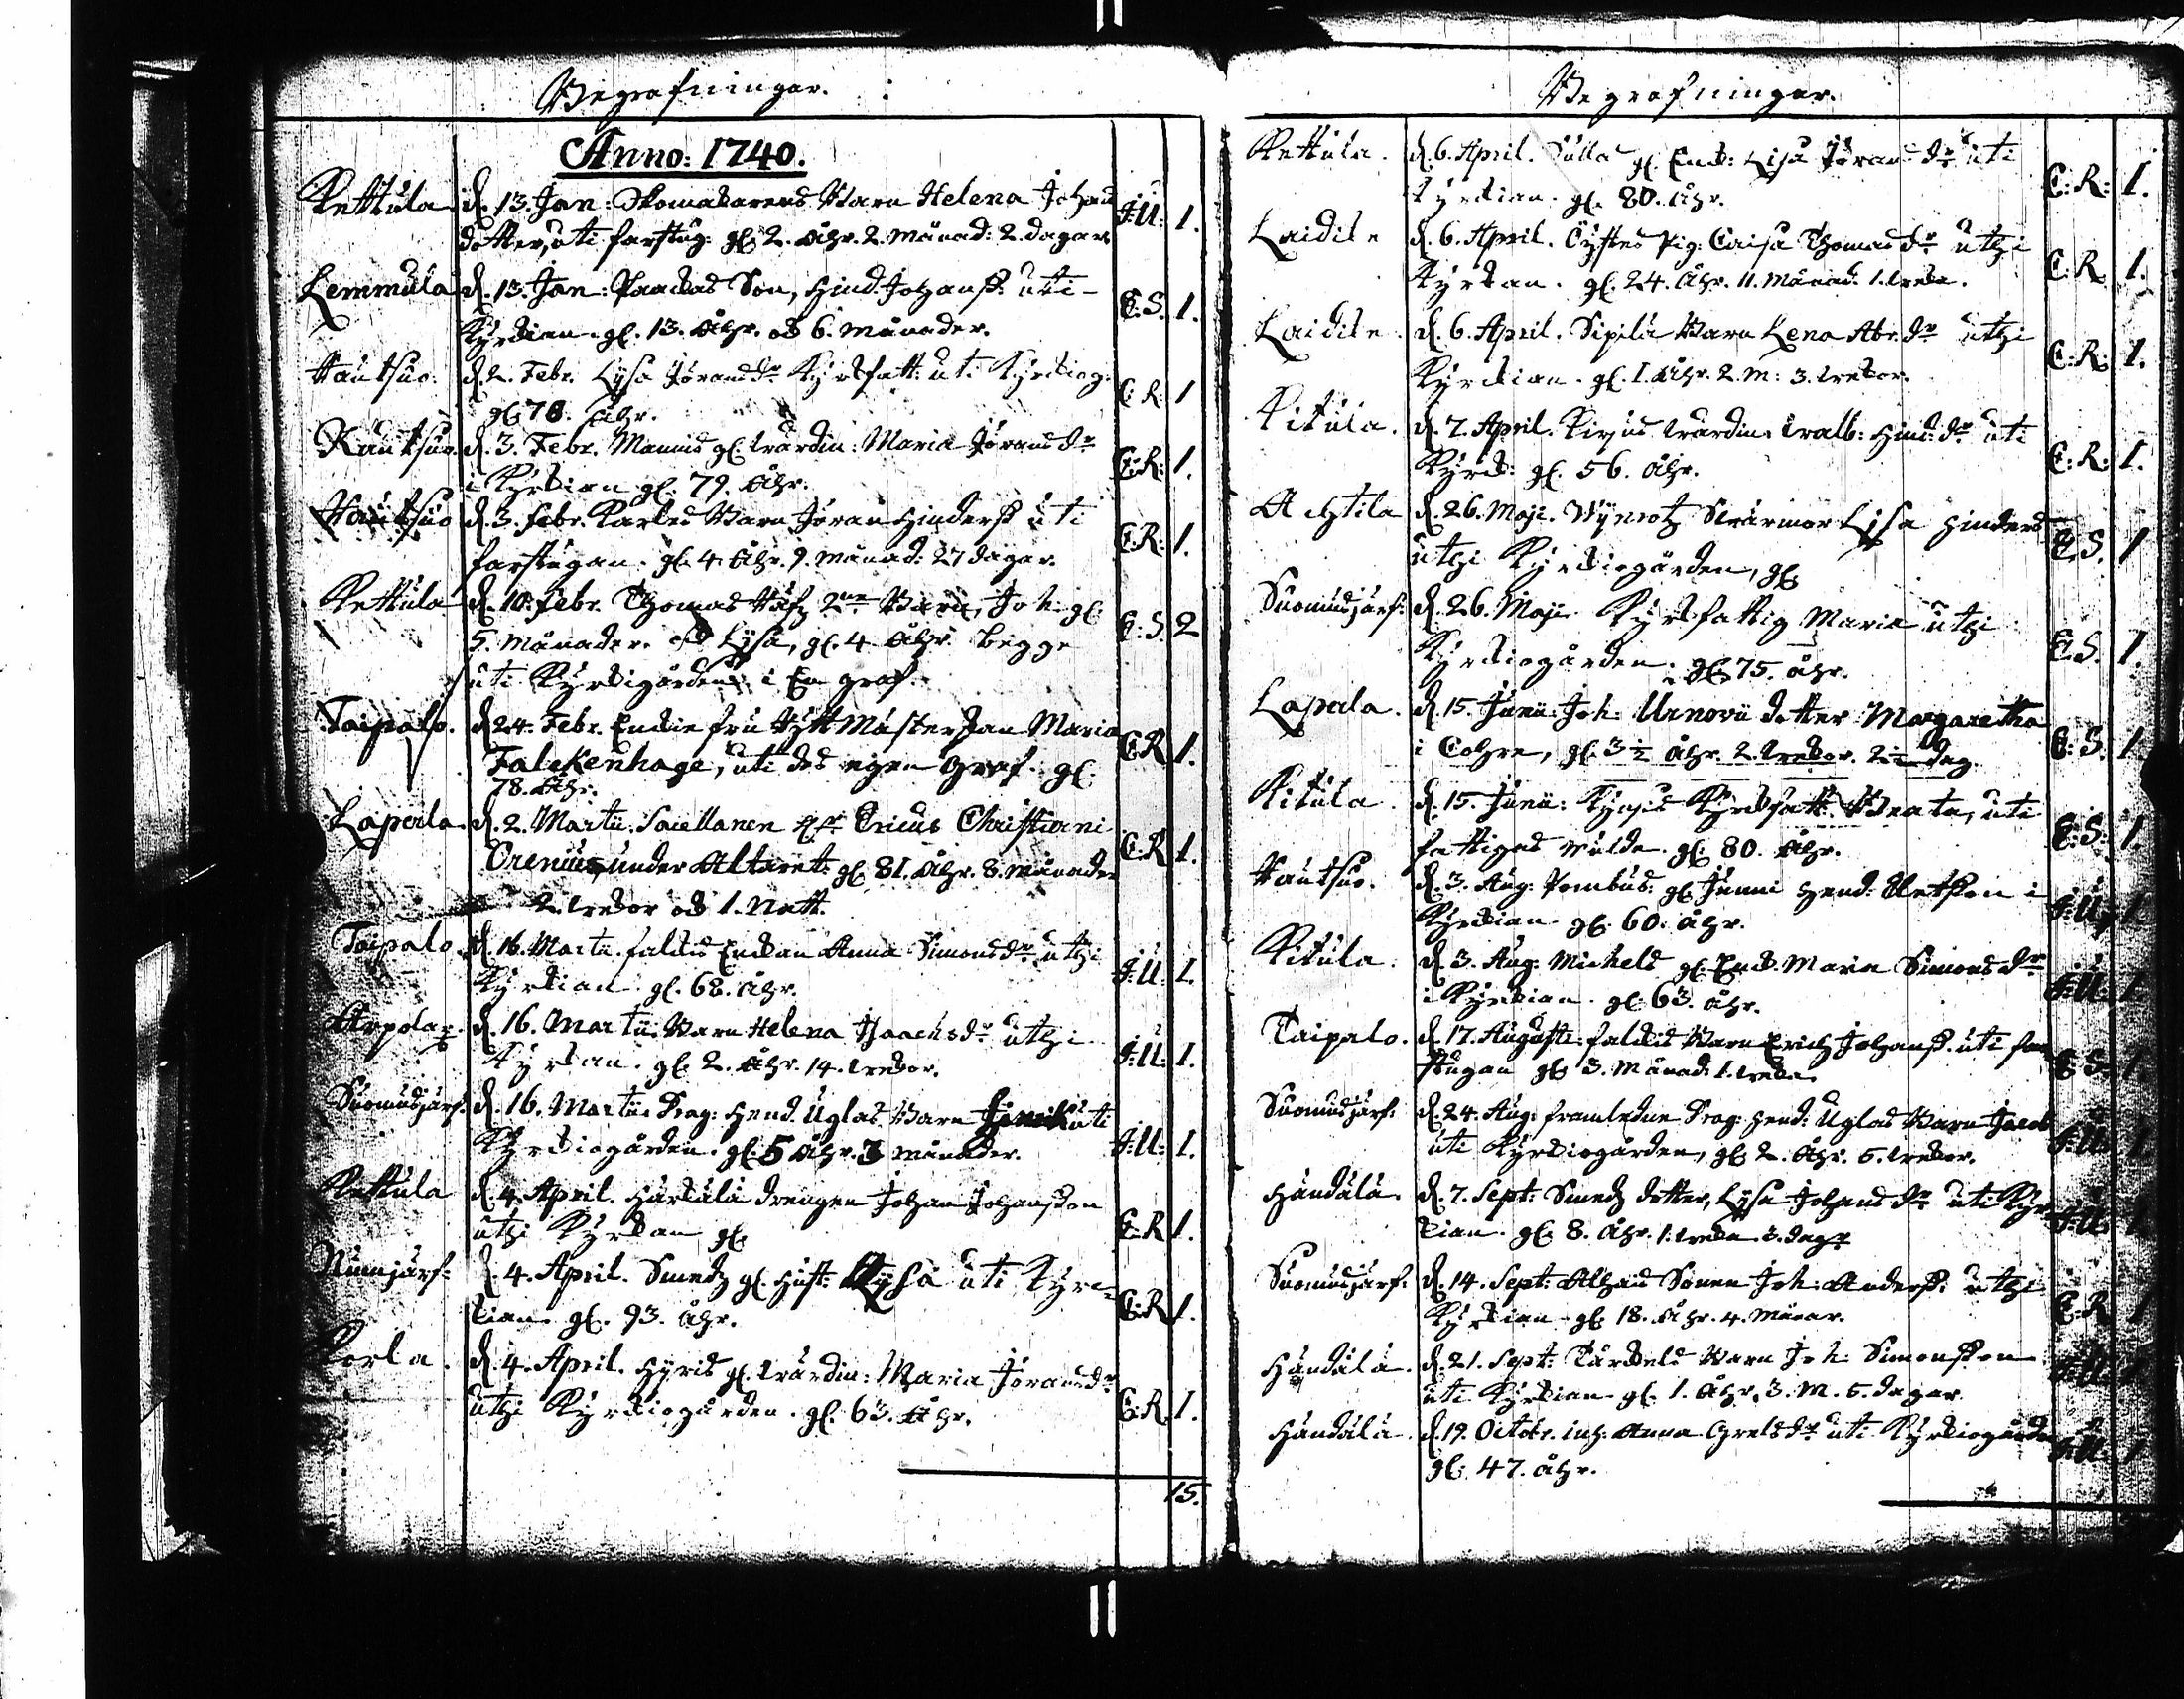 Begrafningar.
Anno: 1740.
Kettula d. 13. Jan: Skomakarens Barn Helena Johans
dotter, uti farstug: gl: 2. Åhr. 2. Månad: 2. dagar. J:U: 1.
Lemmula d. 13. Jan: Son, Hind: Johanss: uti
Kyrckian. gl. 13. Åhr. och 6. Månader. E:S. 1.
Hautsuo. d. 2. Febr. Lysa Jöransdr Kyrckfatt: uti Kyrckiog:
gl: 78. Åhr. E:R: 1
Rautsuo. d. 3. Febr. gl. wärdin: Maria Jöransdr
i Kyrckian gl. 79. Åhr. E:R: 1.
Hautsuo d. 3. Febr. Barn Jöran Hinderss: uti
farstugan. gl. 4. Åhr. 9. Månad: 27 dagar. E:R: 1.
Kettula d. 10. Febr. Thomas 2ne Barn, Joh: gl:
5. Månader. och Lysa, gl. 4. Åhr. begge
uti Kyrckigården i En graf. E:S. 2
Taipalo. d. 24. Febr. Enckie fru Maria
Falckenhage, uti des egen graf. gl.
78. Åhr. E:R 1.
Lapela. d. 2. Martii. Sacellanen Ericus Christiani
Orenius, under Altaret: gl. 81. Åhr. 8. Månader
2. weckor och 1. Natt. E:R 1.
Taipalo. d. 16. Martii. Enckan Anna Simonsdr: uthi
Kyrckian. gl. 68. Åhr. J:U: 1.
d. 16. Martii. Barn Helena Isaachsdr uthi
Kyrckan. gl. 2. Åhr. 14. weckor. J:U: 1.
Suomusjärf: d. 16. Martii Drag: Hend: Uglas Barn uti
Kyrckiogården. gl. 5 Åhr. 3 månader. J:U: 1.
Kettula d. 4. April. Härkälä drengen Johan Johansson
uthi Kyrckan gl. E:R 1.
d. 4. April. Smedz gl. Hust: Lysa uti Kyrc-
kian. gl. 93. Åhr. E:R 1.
d. 4. April. Hyris gl. wärdin: Maria Jöransdr
uthi Kyrckiogården. gl. 63. Åhr. E:R. 1.
15.
Begrafningar.
Kettula. d. 6. April. gl. Enck: Lisa Jöransdr uti
Kyrckian. gl. 80. Åhr. E:R: 1.
Laidike d. 6. April. Pig: Caisa Thomasdr uthi
Kyrckan. gl. 24. Åhr. 11. Månad: 1. wecka. E:R 1.
Laidike. d. 6. April. Sipilä Barn Lena Abr.dr uthi
Kyrckian. gl. 1. Åhr. 2. M: 3. weckor. E:R: 1.
Kitula. d. 7. April. wärdin: Walb: Hind:dr uti
Kyrck: gl. 56. Åhr. E:R: 1.
Achtila d. 26. Maji. Swärmor Lysa Hinders
uthi Kyrckiogården, gl. E:S. 1
Suomusjärf: d. 26. Maji. Kyrckfattig Maria uthi
Kyrckiogården. gl: 75. åhr. E:S. 1.
Lapela. d. 15. Junii. Joh: Urnovii dotter Margaretha
i Cohre, gl. 3½ Åhr. 2. weckor. 2½ dag. E:S. 1.
Kitula. d. 15. Junii: Kyrckfatt: Beata, uti
fattigas mulda gl: 80. Åhr. E:S: 1.
Hautsuo. d. 3. Aug: gl. Hend: i
Kyrckian. gl. 60. åhr. J:U: 1
Kitula. d. 3. Aug: Michels gl. Enck: Maria Simonsdr
i Kyrckian. gl. 63. åhr. J:U: 1.
Taipalo. d. 17. Augusti: Barn Erich Johanss: uti far
stugan gl: 3. Månad: 1. wecka. E:S: 1.
Suomusjärf: d. 24. Aug: framledne Drag: Hend: Uglas Barn Jacob
uti Kyrckiogården, gl. 2. Åhr. 5. weckor. J:U: 1
Händälä. d. 7. Sept: Smedz dotter, Lysa Johansdr uti Kyrc
kian. gl. 8. Åhr. 1. wecka 3. dagr J:U: 1
Suomusjärf: d. 14. Sept: Sonen Joh: Anderss: uthi
Kyrckian gl. 18. Åhr. 4. Månar. E:R 1
Händälä. d. 21. Sept: Barn Joh: Simonsson
uti Kyrckian gl. 1. Åhr. 3. M. 5. dagar J:U: 1
Händälä. d. 19. Octobr. inh: Anna Grelsdr uti Kyrckiogården
gl. 47. åhr. J:U: 1